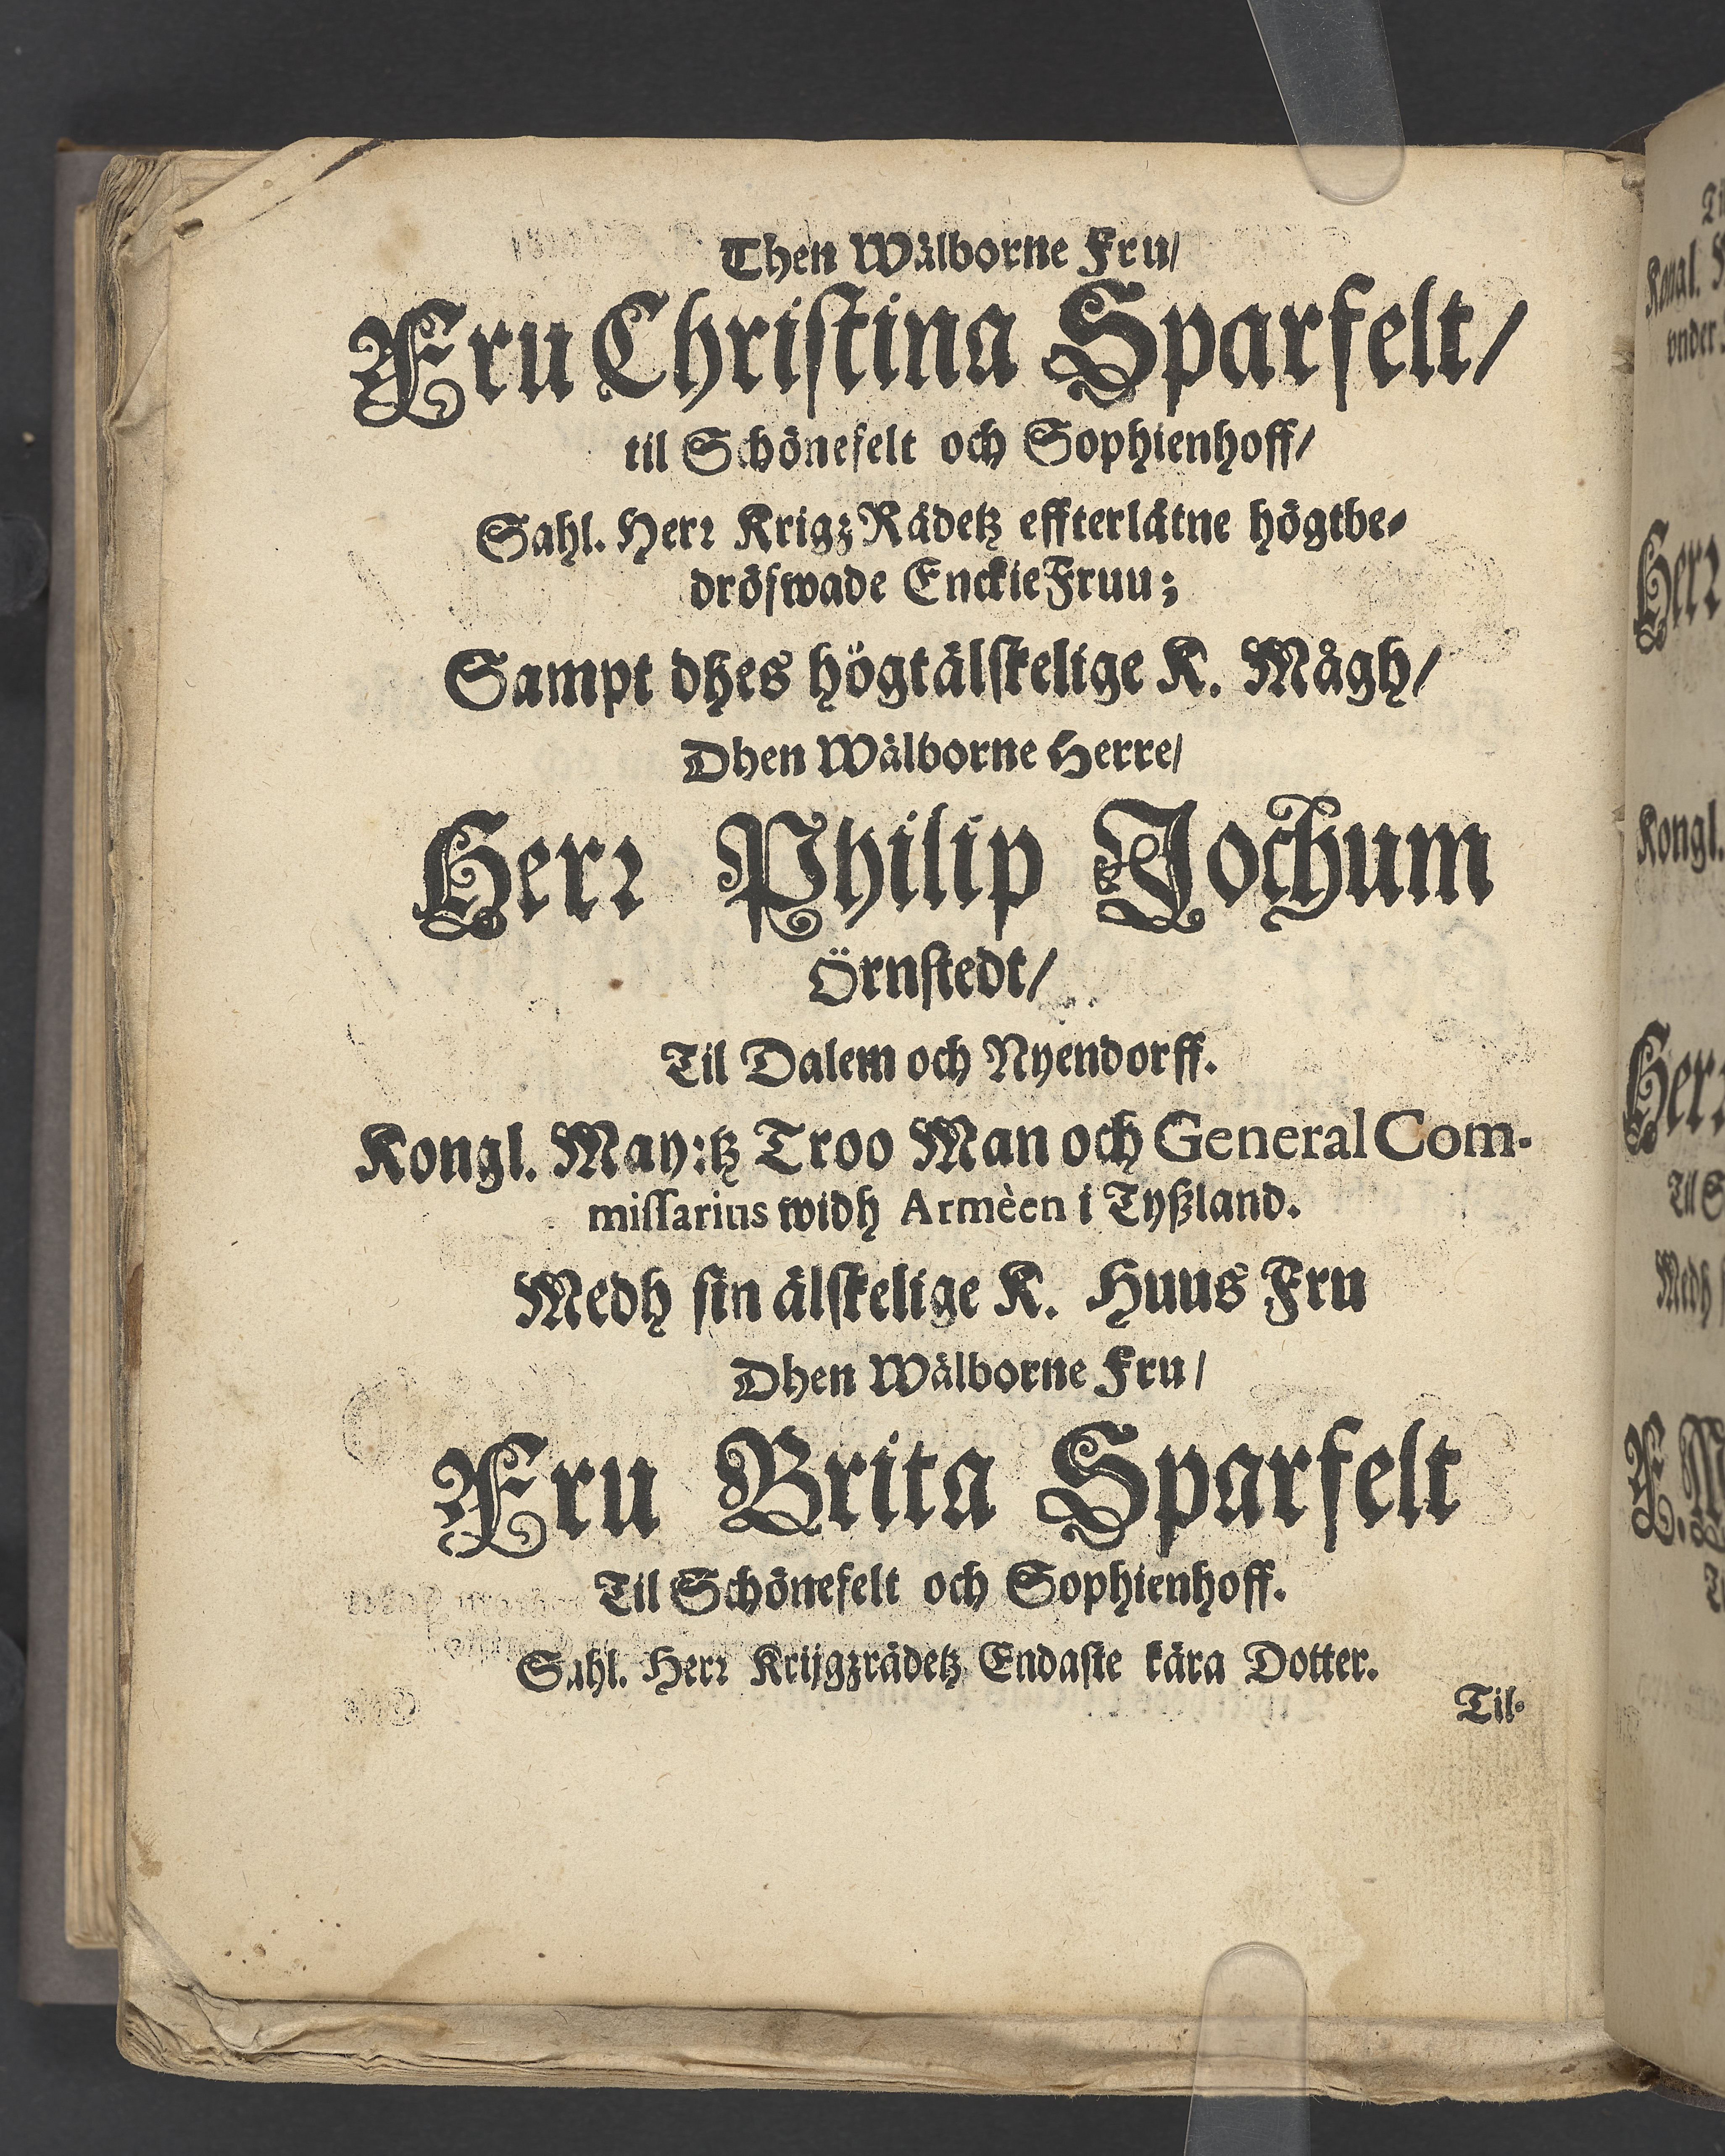 Then Wälborne Fru/
Fru Christina Sparfelt/
til Schönefelt och Sophienhoff/
Sahl. Herr Krigz Rådetz effterlåtne högtbe-
dröfwade EnckieFruu;
Sampt dhes högtälskelige K. Mågh/
Dhen Wälborne Herre/
Herr Philip Jochum
Örnstedt/
Til Dalem och Nyendorff.
Kongl. May:tz Troo Man och General Com-
missarius widh Armèen i Tyßland.
Medh sin älskelige K. Huus Fru
Dhen Wälborne Fru/
Fru Brita Sparfelt
Til Schönefelt och Sophienhoff.
Sahl. Herr Krijgzrådetz Endaste kära Dotter.
Til-
Kongl.
Herr
Kongl.
Herr
Medh